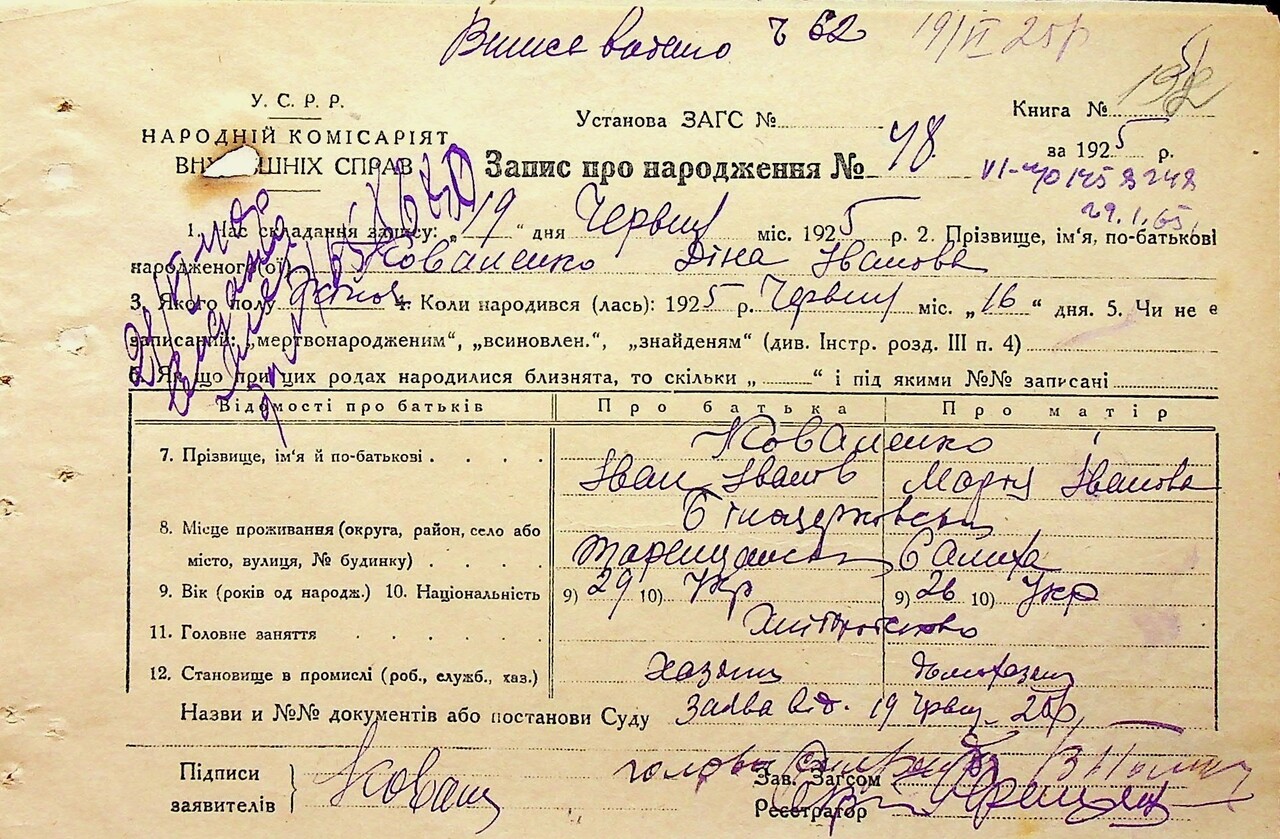 ч 62 19/VI 25р
У. С. Р. Р.
НАРОДНІЙ КОМІСАРІЯТ
ВНУ ШНІХ СПРАВ
Установа ЗАГС №
Книга №
за 1925 р.
Запис про народження № 48.
29.I.65.
1. Час складання запису: „19“ дня Червня міс. 1925 р. 2. Прізвище, ім'я, по-батькові
народженого(ої) Коваленко Діна Іванова
3. Якого полу 4. Коли народився (лась): 1925 р. Червня міс. „16“ дня. 5. Чи не є
записаний: „мертвонародженим“, „всиновлен.“, „знайденям“ (див. Інстр. розд. III п. 4)
6. Якщо при цих родах народилися близнята, то скільки „ “ і під якими №№ записані
Відомості про батьків Про батька Про матір
7. Прізвище, ім'я й по-батькові . . . . Коваленко
Іван Іванов Марія Іванова
8. Місце проживання (округа, район, село або Білоцерковськ
місто, вулиця, № будинку) . . . . Таращанськ
9. Вік (років од народж.) 10. Національність 9) 29 10) Укр 9) 26 10) Укр
11. Головне заняття . . . . . Хліборобство
12. Становище в промислі (роб., служб., хаз.) хазяїн
Назви и №№ документів або постанови Суду Заява від. 19 Червн. 25р.
Підписи
заявителів
голова
Зав. Загсом
Реєстратор